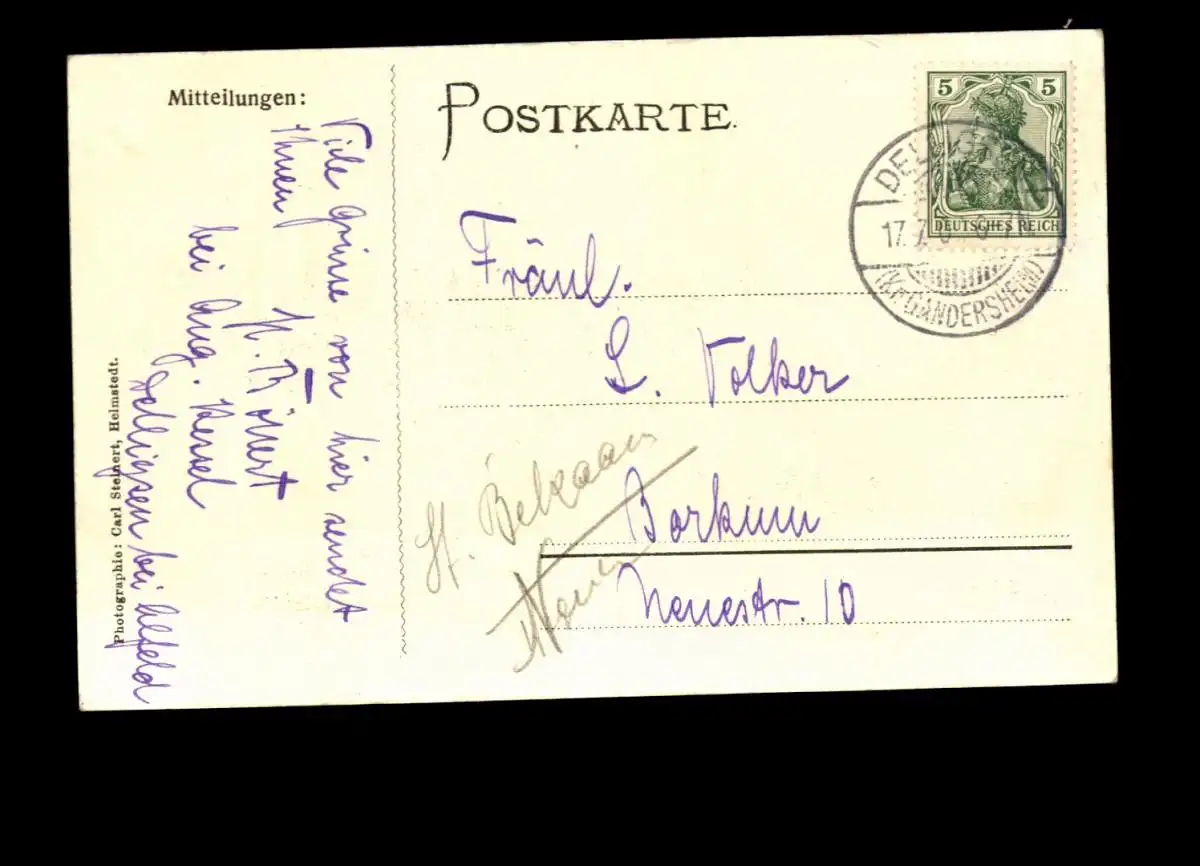 Mitteilungen:
Viele Grüsse von hier sendet
Ihnen
bei Aug. Kessel
Delligsen bei Alfeld
Photographie: Carl Steinert, Helmstedt.
POSTKARTE.
5 5
DEUTSCHES REICH
17.7
(Kr. GANDERSHEIM)
Fräul.
L. Volker
Borkum
Neuestr. 10